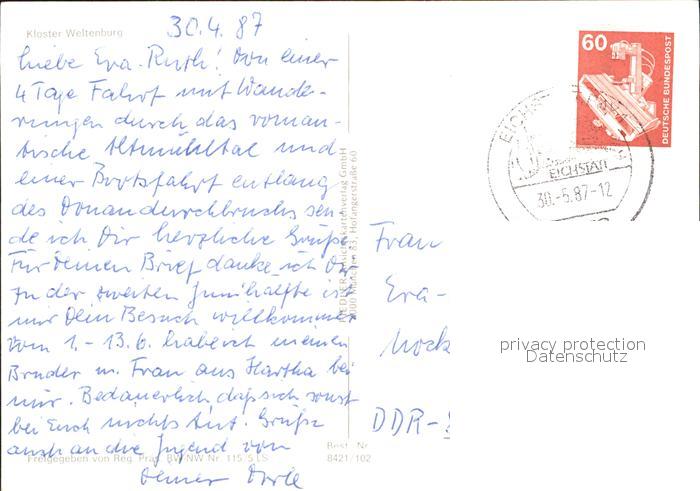 Kloster Weltenburg
30.4.87
liebe Eva-Ruth! Von einer
4 Tage Fahrt mit Wande-
rungen durch das roman-
tische Altmühltal und
einer Bootsfahrt entlang
des Donaudurchbruchs sen-
de ich Dir herzliche Grüße.
Für Deinen Brief danke ich Dir
In der zweiten Junihälfte is
mir Dein Besuch willkommen
Vom 1.-13.6. habe ich meinen
Bruder m. Frau aus Hartha bei
mir. Bedauerlich, daß sich sonst
bei Euch nichts tut. Grüße
auch an die Jugend von
Deiner Dorle
Freigegeben von Reg. Präs. BW-NW Nr. 115/5 LS
Best. Nr.
8421/102
Ansichtskartenverlag GmbH
8000 München 83, Hofangerstraße 60
60
DEUTSCHE BUNDESPOST
EICHSTÄTT
30.-5.87-12
Frau
Eva-
Nock
DDR-
privacy protection
Datenschutz